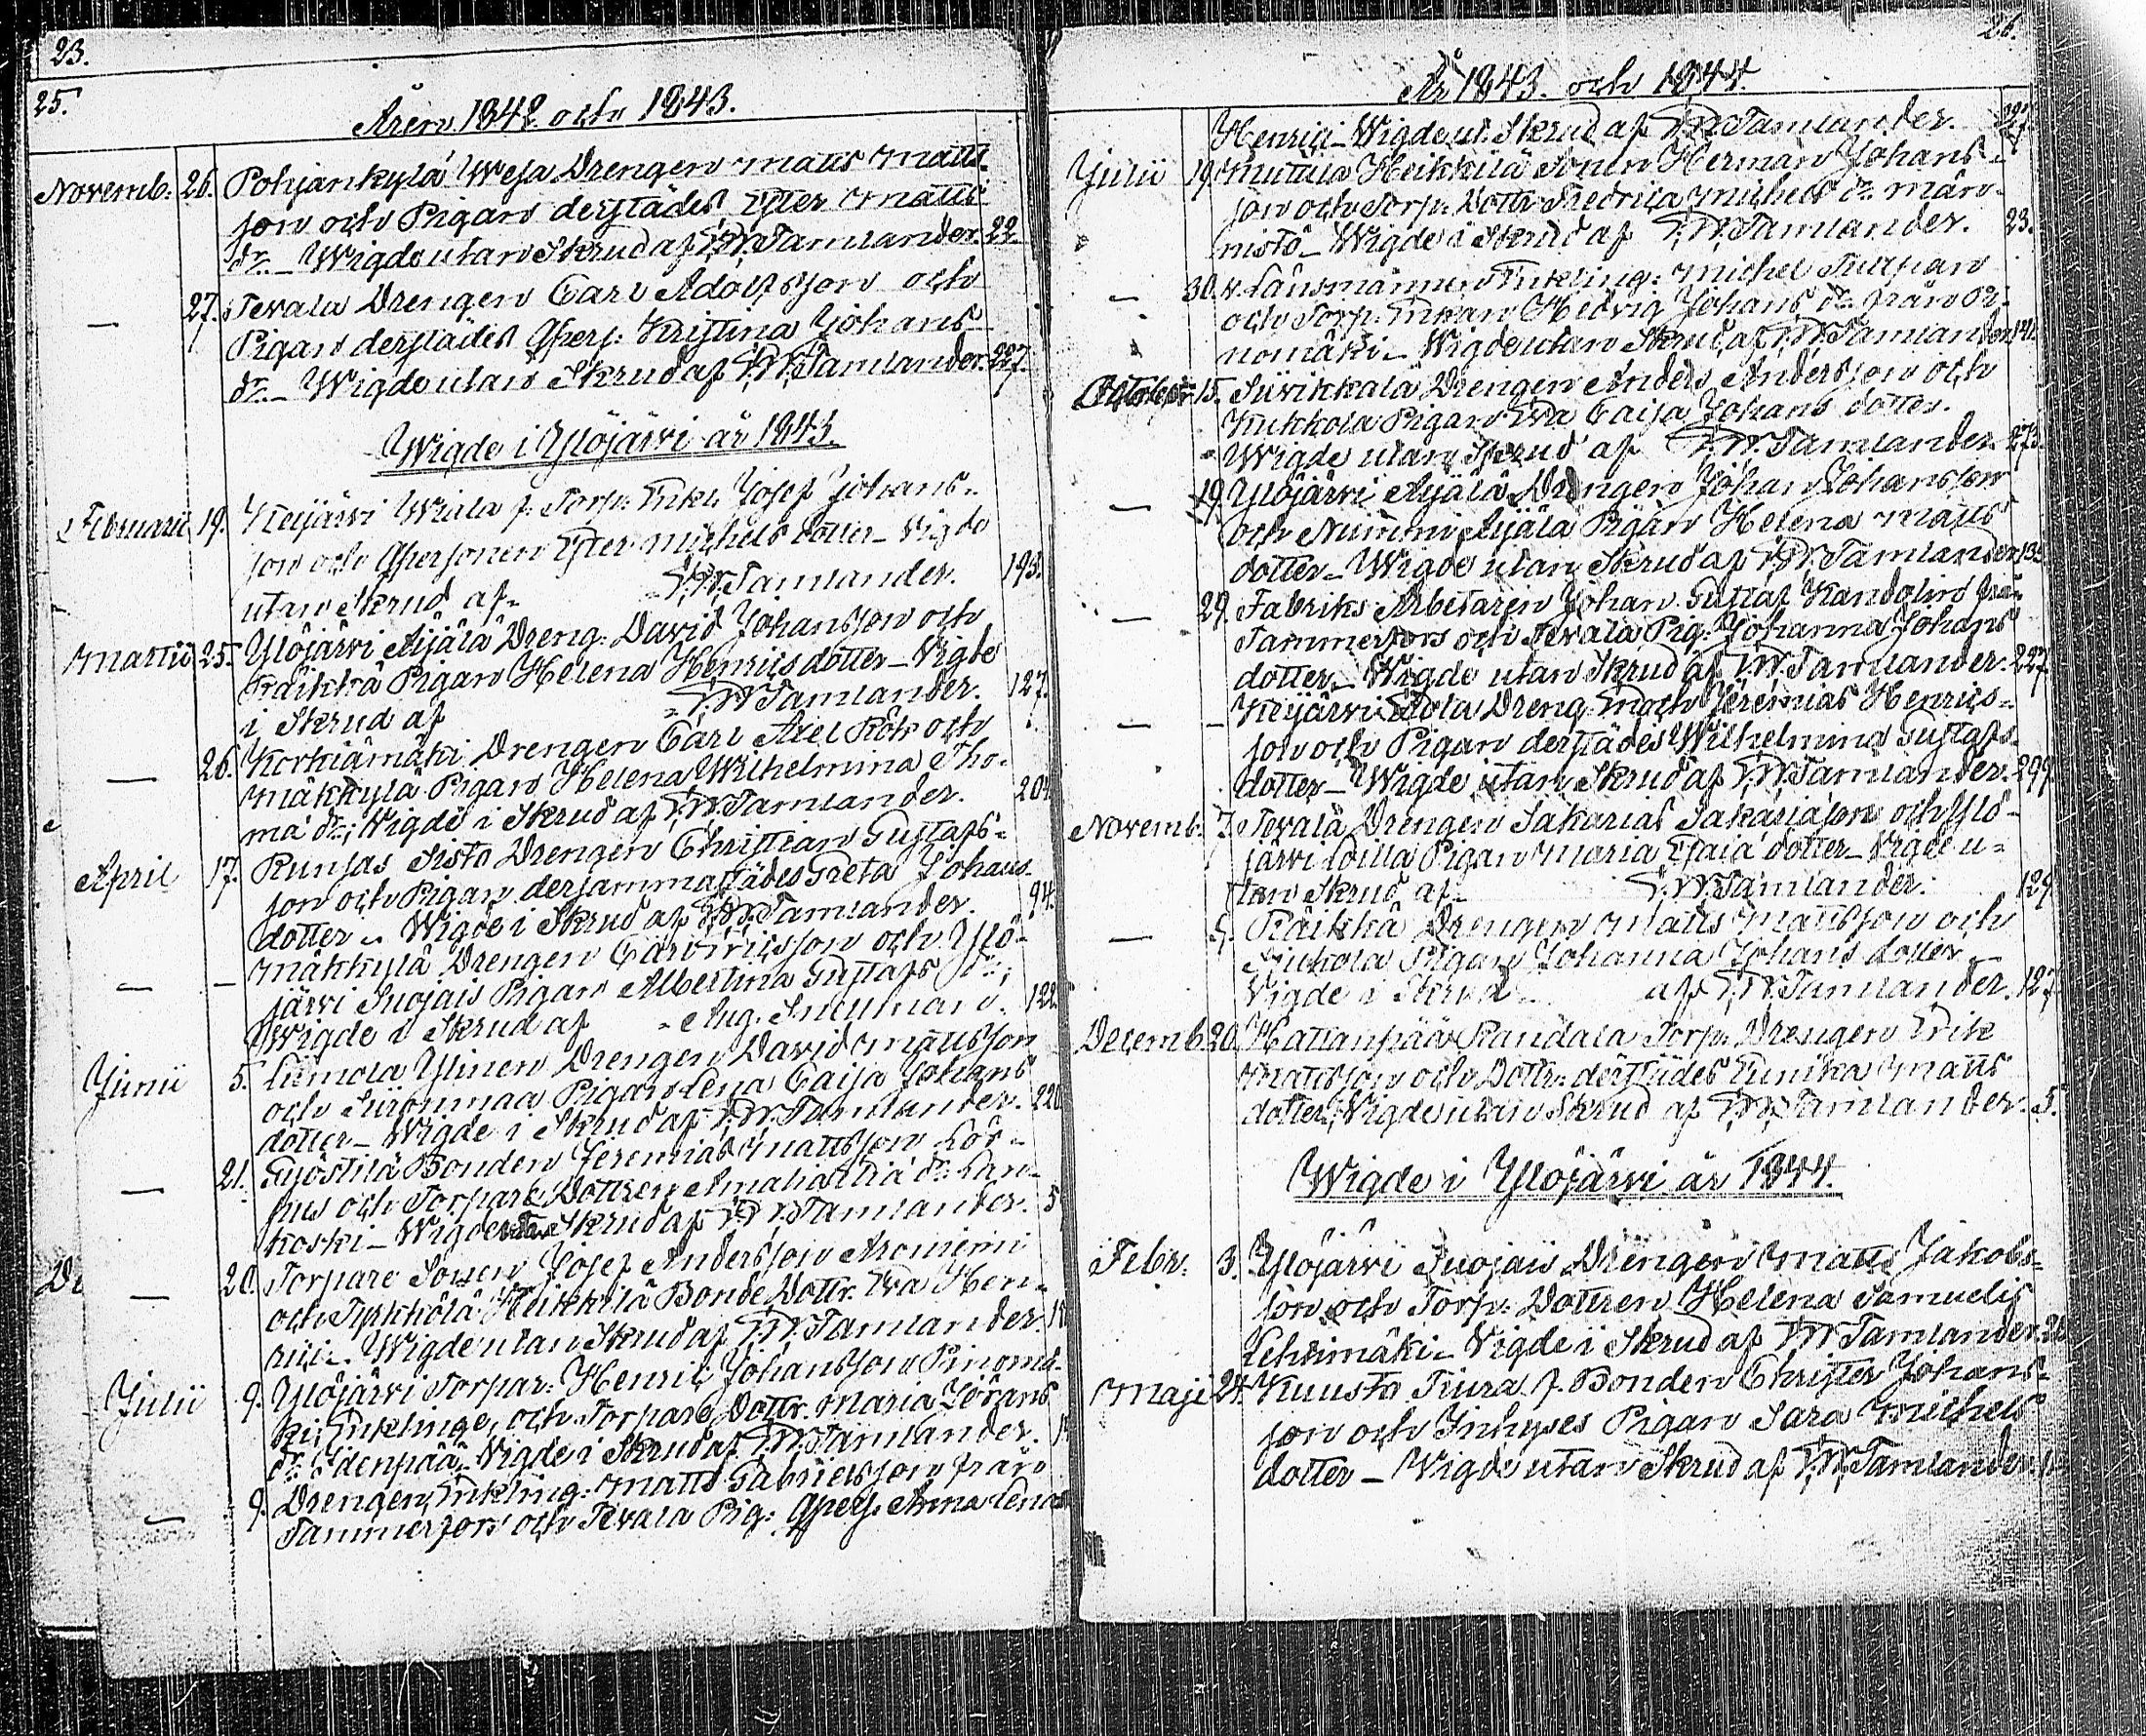 23.
25.
Åren 1842 och 1843.
Novemb: 26. Pohjankylä Weja Drengen Matts Matts-
son och Pigan derstädes Ester Matts
dr. Wigde utan Skrud af F.W.Tamlander. 22.
— 27. Tevala Drengen Carl Adolfsson och
Pigan derstädes Kristina Johans
dr. Wigde utan Skrud af F.W.Tamlander. 227.
Wigde i Ylöjärvi år 1843.
Februarii 19. Keijärvi f. Torp: Enkl. Josef Johans-
son och Ester Michels dotter Vigde
utan Skrud af F.W.Tamlander. 193.
Martii 25. Ylöjärvi Äijälä Dreng: David Johansson och
Räikkä Pigan Helena Henricsdotter Vigde
i Skrud af F.W.Tamlander. 127.
— 26. Korkiamäki Drengen Carl Axel Rök och
Mäkkylä Pigan Helena Wilhelmina Tho-
ma dr; Wigde i Skrud af F.W.Tamlander. 204
April 17. Runsas Sisto Drengen Christian Gustafs-
son och Pigan dersammastädes Greta Johans
dotter Wigde i Skrud af F.W.Tamlander. 94.
— — Mäkkylä Drengen Carl Ericsson och Ylö-
järvi Suojais Pigan Albertina Gustafs dr;
Wigde i Skrud af Aug. Snellman. 122
Junii 5. Liimola Ylinen Drengen David Mattsson
och Siironmaa Pigan Lena Caisa Johans
dotter Wigde i Skrud af F.W.Tamlander. 220
— 21. Työstilä Bonden Jeremias Mattsson Lör-
pus och Torpare Dottren Amalia dr. Lan-
koski Wigde utan Skrud af F.W.Tamlander. 5
— 20. Torpare Sonen Josef Andersson Aroniemi
och Heikkilä Bonde Dottr. Eva Hen-
rici Wigde utan Skrud af F.W.Tamlander.
Julii 9. Ylöjärvi Torpar: Henric Johansson Pinomä-
ki; Enklinge, och Torpare Dottr. Maria Jörans
dr. Edenpää Vigde i Skrud af F.W.Tamlander.
— 9. Drengen Enkling: Matts Gabrielsson från
Tammerfors och Tevala Pig: Anna Lena
26.
År 1843. och 1844.
Henrici Wigde ut. Skrud af F.W.Tamlander.
Julii 19. Mutala Heikkilä Sonen Herman Johans-
son och Torp: Dottr Fredrica Michels dr. Män-
nistö Wigde i Skrud af F.W.Tamlander. 23.
— 30. Länsmannen Enkling: Michel
och Torp: Enkan Hedvig Johans dr. från Pi-
nomäki Wigde utan Skrud af F.W.Tamlander
October 15. Siivikkala Drengen Anders Andersson och
Kukkola Pigan Eva Caisa Johans dotter.
Wigde utan Skrud af F.W.Tamlander. 273.
— 19. Ylöjärvi Äijälä Drengen Johan Johansson
och Nummi Äijälä Pigan Helena Matts
dotter Wigde utan Skrud af F.W.Tamlander
— 29. Fabriks Arbetaren Johan Gustaf Kandolin från
Tammerfors och Tevala Pig: Johanna Johans
dotter Wigde utan Skrud af F.W.Tamlander. 227.
— — Keijärvi Dreng Enock Jeremias Henrics-
son och Pigan derstädes Wilhelmina Gustafs-
dotter Wigde utan Skrud af F.W.Tamlander. 299
Novemb: 7. Tevala Drengen Sakarias Sakariason och Ylö-
järvi Pigan Maria Esaia dotter Vigde u-
tan Skrud af F.W.Tamlander. 129
— 9. Räikkä Drengen Matts Mattsson och
Pigan Johanna Johans dotter
Vigde i Skrud af F.W.Tamlander. 127
Decemb: 20. Hattanpää Randala Torp: Drengen Erik
Mattsson och Dottr: derstädes Eunika Matts
dotter, Wigde utan Skrud af F.W.Tamlander. 5.
Wigde i Ylöjärvi år 1844.
Febr: 3. Ylöjärvi Suojais Drengen Matts Jakobs-
son och Torp: Dottren Helena Samuelis
Lehtimäki Vigde i Skrud af F.W.Tamlander
Maji 24. Kuusto Tiura f. Bonden Christer Johans-
son och Inhyses Pigan Sara Michels
dotter Vigde utan Skrud af F.W.Tamlander.